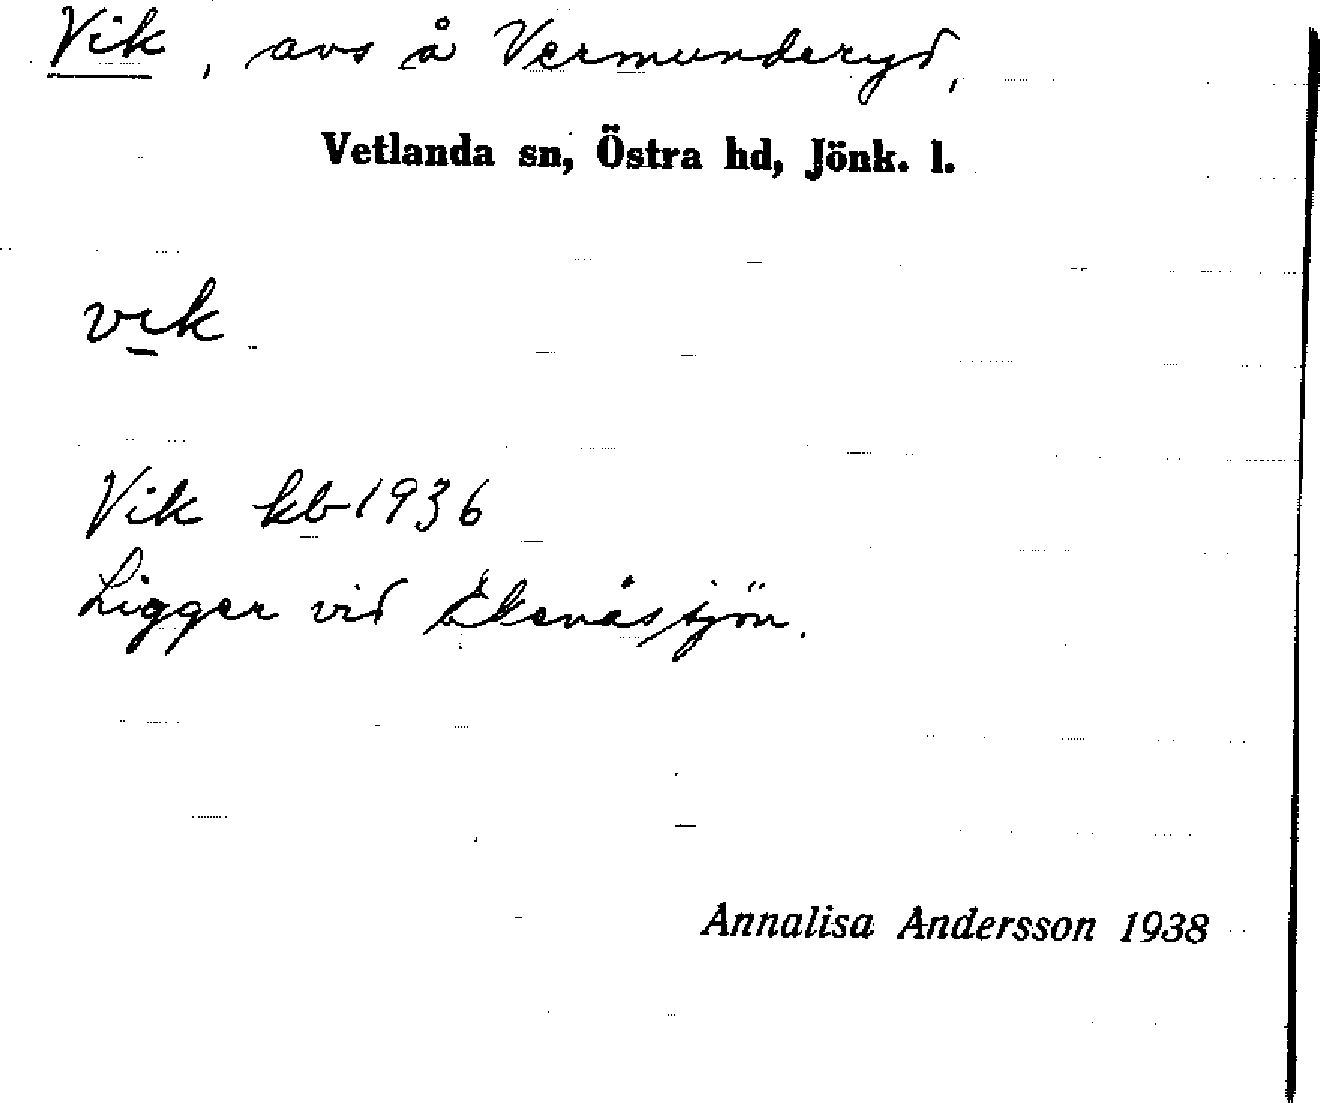 Vik, avs å Vermunderyd,
Vetlanda sn, Östra hd, Jönk. l.
vik
Vik kb 1936
Ligger vid Ekenässjön.
Annalisa Andersson 1938